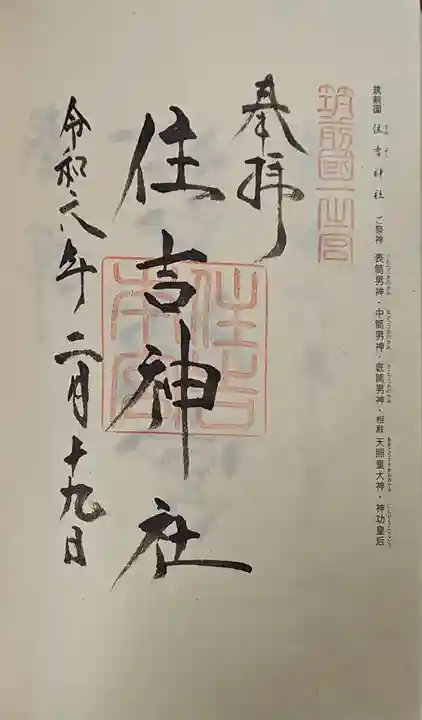 筑前國 住吉神社 ご祭神 表筒男神・中筒男神・底筒男神・相殿 天照皇大神・神功皇后
筑前國一之宮
奉拝
住吉神社
住吉本宮
令和六年二月十九日